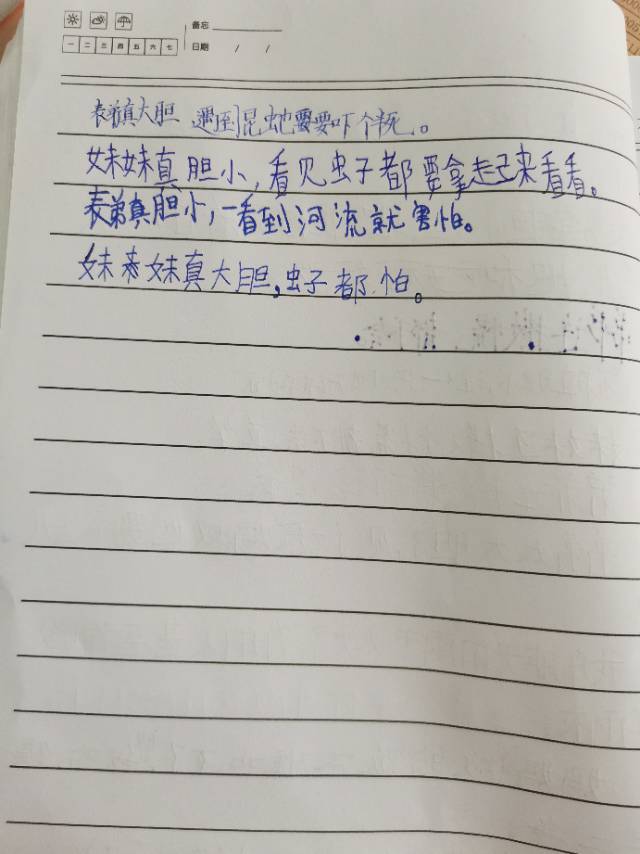 备忘
一 二 三 四 五 六 七
日期 / /
表弟真大胆 遇到昆虫也要要吓个半死。
妹妹真胆小,看见虫子都要拿走起来看看。
表弟真胆小,一看到河流就害怕。
妹表妹真大胆,虫子都怕。